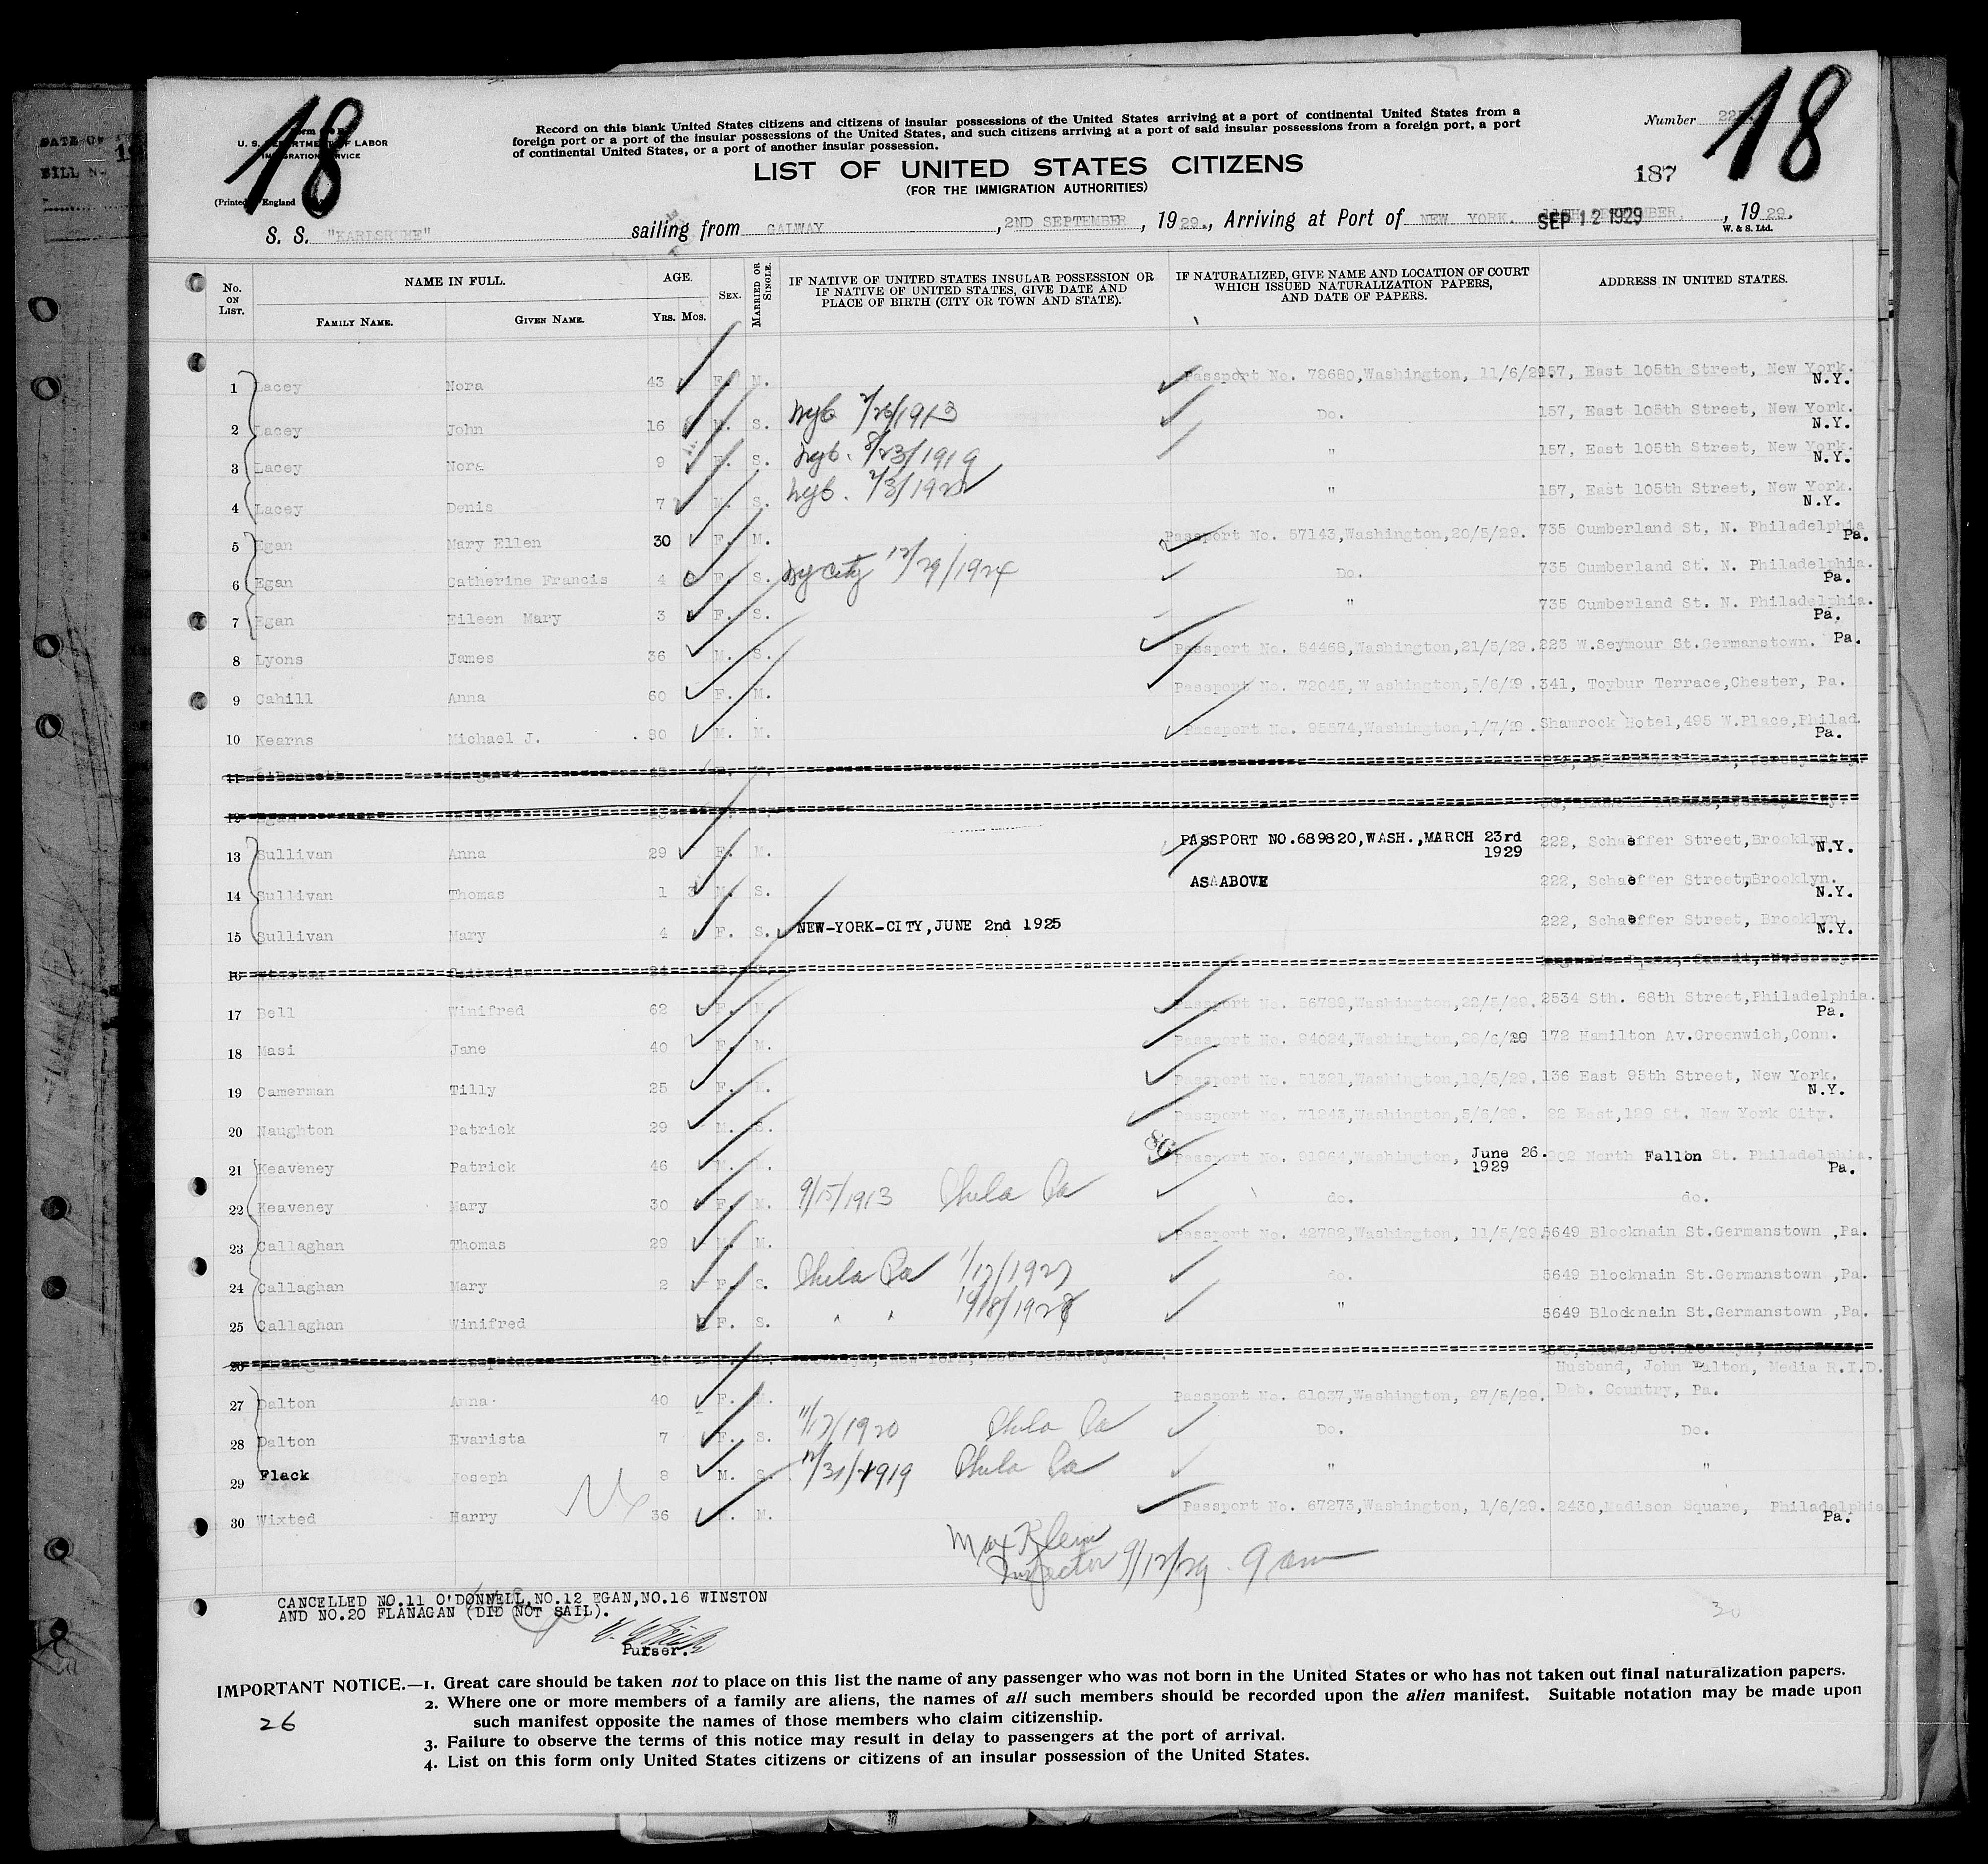 18
18
DATE OF
BILL N
U. S. DEPARTMENT OF LABOR
IMMIGRATION SERVICE
(Printed England
Record on this blank United States citizens and citizens of insular possessions of the United States arriving at a port of continental United States from a
foreign port or a port of the insular possessions of the United States, and such citizens arriving at a port of said insular possessions from a foreign port, a port
of continental United States, or a port of another insular possession.
Number
187
LIST OF UNITED STATES CITIZENS
(FOR THE IMMIGRATION AUTHORITIES)
S. S. "KARLSRUHE" sailing from GALWAY, 2ND SEPTEMBER, 1929., Arriving at Port of NEW YORK. SEP 12 1929, 1929.
W. & S. Ltd.
No. ON LIST. NAME IN FULL. AGE. SEX. MARRIED OR SINGLE. IF NATIVE OF UNITED STATES INSULAR POSSESSION OR IF NATIVE OF UNITED STATES, GIVE DATE AND PLACE OF BIRTH (CITY OR TOWN AND STATE). IF NATURALIZED, GIVE NAME AND LOCATION OF COURT WHICH ISSUED NATURALIZATION PAPERS, AND DATE OF PAPERS. ADDRESS IN UNITED STATES.
FAMILY NAME. GIVEN NAME. YRS. MOS.
1 Lacey Nora 43 F. M. Passport No. 78680,Washington, 11/6/29. 157, East 105th Street, New York. N.Y.
2 Lacey John 16 M. S. 1913 Do. 157, East 105th Street, New York. N.Y.
3 Lacey Nora 9 F. S. 8/23/1919 " 157, East 105th Street, New York. N.Y.
4 Lacey Denis 7 M. S. " 157, East 105th Street, New York. N.Y.
5 Egan Mary Ellen 30 F. M. Passport No. 57143,Washington,20/5/29. 735 Cumberland St, N. Philadelphia Pa.
6 Egan Catherine Francis 4 F. S. NY City 12/29/1924 Do. 735 Cumberland St. N. Philadelphia. Pa.
7 Egan Eileen Mary 3 F. S. " 735 Cumberland St. N. Philadelphia. Pa.
8 Lyons James 36 M. S. Passport No. 54468,Washington,21/5/29. 223 W.Seymour St.Germanstown. Pa.
9 Cahill Anna 60 F. M. Passport No. 72045, Washington,5/6/29. 341, Toybur Terrace,Chester, Pa.
10 Kearns Michael J. 30 M. M. Passport No. 95574,Washington,1/7/29. Shamrock Hotel,495 W.Place,Philad. Pa.
11
12
13 Sullivan Anna 29 F. M. PASSPORT NO.689820,WASH.,MARCH 23rd 1929 222, Schaeffer Street,Brooklyn. N.Y.
14 Sullivan Thomas 1 3 M. S. AS ABOVE 222, Schaeffer Street,Brooklyn. N.Y.
15 Sullivan Mary 4 F. S. NEW-YORK-CITY,JUNE 2nd 1925 222, Schaeffer Street, Brooklyn. N.Y.
16
17 Bell Winifred 62 F. M. Passport No. 56789,Washington,22/5/29. 2534 Sth. 68th Street,Philadelphia. Pa.
18 Masi Jane 40 F. M. Passport No. 94024,Washington,26/6/29 172 Hamilton Av.Greenwich,Conn.
19 Camerman Tilly 25 F. M. Passport No. 51321,Washington,18/5/29. 136 East 95th Street, New York. N.Y.
20 Naughton Patrick 29 M. S. Passport No. 71243,Washington,5/6/29. 22 East,129 St. New York City.
21 Keaveney Patrick 46 M. M. Passport No. 91964,Washington, June 26. 1929 North Fallon St. Philadelphia. Pa.
22 Keaveney Mary 30 F. M. 9/15/1913 Phila Pa do. do.
23 Callaghan Thomas 29 M. M. Passport No. 42782,Washington, 11/5/29. 5649 Blocknain St.Germanstown ,Pa.
24 Callaghan Mary 2 F. S. Phila Pa 1/17/1927 do. 5649 Blocknain St.Germanstown ,Pa.
25 Callaghan Winifred F. S. " " " 5649 Blocknain St.Germanstown ,Pa.
26
27 Dalton Anna. 40 F. M. Passport No. 61037,Washington, 27/5/29. Husband, John Dalton, Media R.I.D. Deb. Country, Pa.
28 Dalton Evarista 7 F. S. 11/17/1920 Phila Pa Do. Do.
29 Flack Joseph 8 M. S. 12/31/1919 Phila Pa " "
30 Wixted Harry 36 M. M. Passport No. 67273,Washington, 1/6/29. 2430,Madison Square, Philadelphia Pa.
Max Klein
Inspector 9/12/29. 9 am
CANCELLED NO.11 O'DONNELL,NO.12 EGAN,NO.16 WINSTON
AND NO.20 FLANAGAN (DID NOT SAIL).
Purser.
30
IMPORTANT NOTICE.—1. Great care should be taken not to place on this list the name of any passenger who was not born in the United States or who has not taken out final naturalization papers.
2. Where one or more members of a family are aliens, the names of all such members should be recorded upon the alien manifest. Suitable notation may be made upon
such manifest opposite the names of those members who claim citizenship.
3. Failure to observe the terms of this notice may result in delay to passengers at the port of arrival.
4. List on this form only United States citizens or citizens of an insular possession of the United States.
26